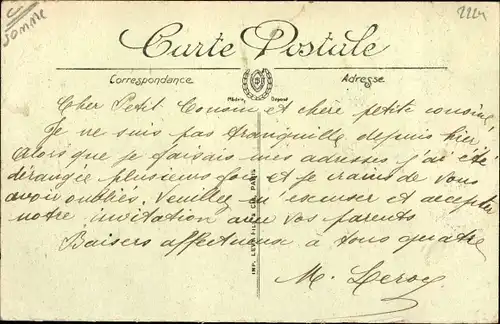 Somme
Carte Postale
Correspondance
Adresse
Modèle Déposé
Cher Petit Cousin et chère petite cousine,
Je ne suis pas tranquille depuis hier,
Alors que je faisais mes adresses j'ai été
dérangée plusieurs fois et je crains de vous
avoir oubliés. Veuillez m'excuser et accepter
notre invitation avec vos parents
Baisers affectueux à tous quatre
M. Leroy
IMP. LEVY FILS & CIE PARIS